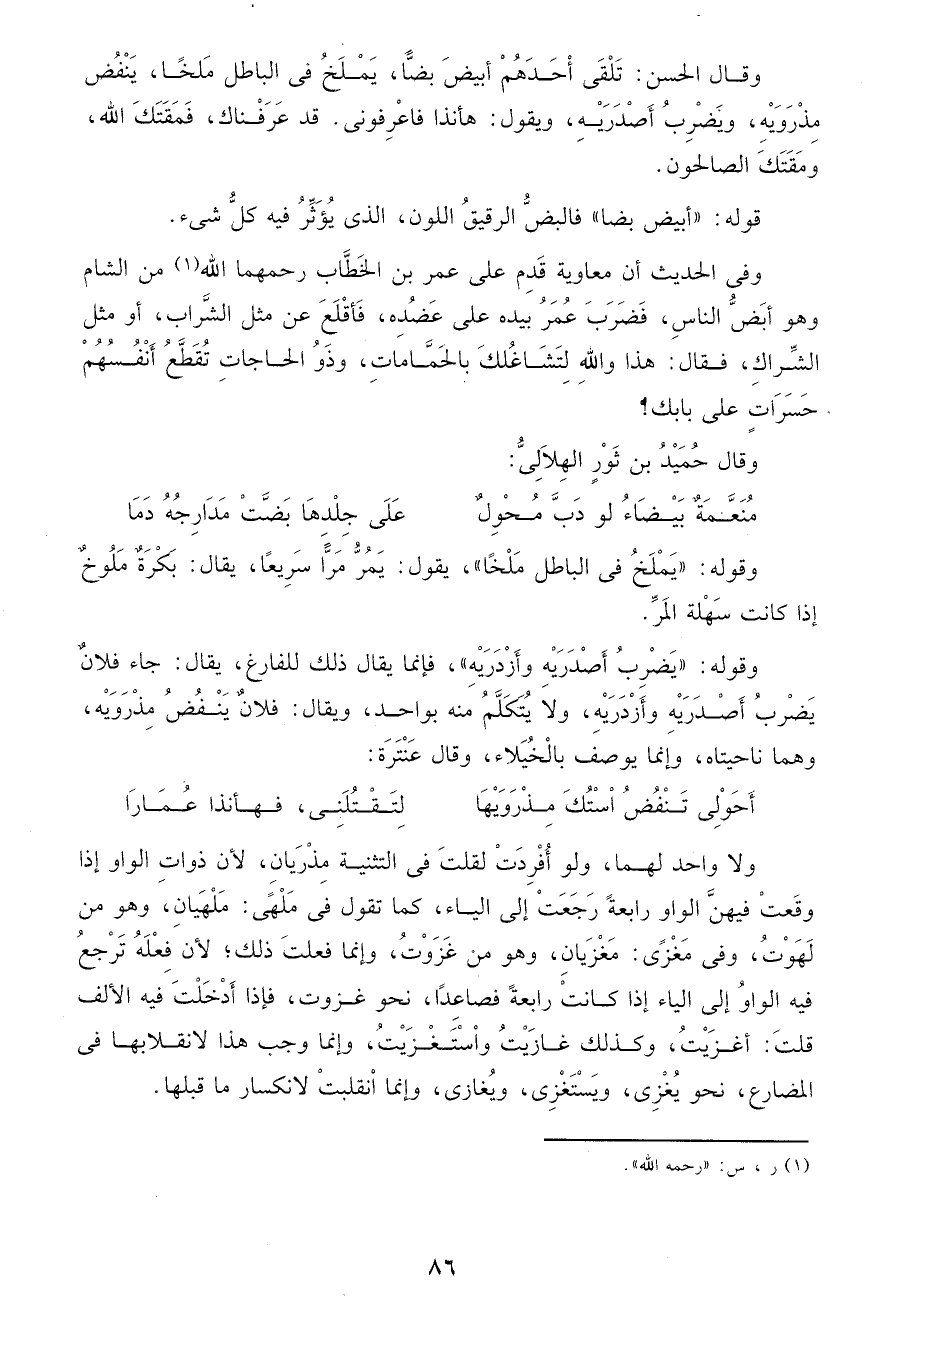 وقـال الحسن: تَلْقَى أَحَـدَهُمْ أبيضَ بضًّا، يَمْـلَخُ فى الباطل مَلْخًـا، يَنْفُض
مِذْرَوَيْهِ، ويَضْرِبُ أَصْدَرَيْـهِ، ويقول: هأنذا فاعْرِفونى. قد عَرَفْـناك، فَمَقَتَكَ الله،
ومَقَتَكَ الصالحون.
قوله: «أبيض بضا» فالبضُّ الرقيقُ اللون، الذى يُؤَثِّرُ فيه كلُّ شىء.
وفى الحديث أن معاوية قَدِم على عمر بن الخَطَّاب رحمهما الله(١) من الشام
وهو أبَضُّ الناس، فَضَرَبَ عُمَرُ بيده على عَضُدِه، فَأَقْلَعَ عن مثل الشَّراب، أو مثل
الشِّراك، فـقال: هذا والله لتَشَـاغُلكَ بالحَمَّـامات، وذَوُ الحـاجاتِ تُقَطَّعُ أَنْفُـسُهُمْ
حَسَرَاتٍ على بابك!
وقال حُمَيْدُ بن ثَوْرٍ الهِلاَلىُّ:
مُنَعَّـمَةٌ بَيْـضَاءُ لو دَبَّ مُـحْوِلٌ على جِلْدِها بَضَّتْ مَدَارِجُهُ دَمَا
وقوله: «يَمْلَخُ فى الباطل مَلْخًا»، يقول: يَمُرُّ مَرًّا سَرِيعًا، يقال: بَكْرَةٌ مَلُوخٌ
إذا كانت سَهْلة المَرِّ.
وقوله: «يَضْرِبُ أَصْدَرَيْهِ وأَزْدَرَيْه»، فإنما يقال ذلك للفارِغ، يقال: جاء فلانٌ
يَضْرِبُ أَصْـدَرَيْهِ وأَزْدَرَيْه، ولا يُتَكَلَّمُ منه بواحـد، ويقال: فلانٌ يَنْـفُضُ مِذْرَوَيْه،
وهما ناحيتاه، وإنما يوصف بالْخُيَلاء، وقال عَنْتَرَة:
أَحَوْلِى تَـنْفُضُ اسْتُكَ مِـذْرَوَيْهَا لتَـقْـتُلَنِـى، فـهـأنذا عُـمَـارَا
ولا واحد لهـما، ولو أُفْرِدَتْ لقلتَ فى التثنيـة مِذْرَيان، لأن ذوات الواو إذا
وقَعتْ فيهنَّ الواو رابعةً رَجَعَتْ إلى اليـاء، كما تقول فى مَلْهًى: مَلْهَيان، وهو من
لَهَوْتُ، وفى مَغْزًى: مَغْزِيان، وهو من غَزَوْتُ، وإنما فعلتَ ذلك؛ لأن فعلَهُ تَرْجعُ
فيه الواوُ إلى الياء إذا كـانتْ رابعةً فصاعدًا، نحو غـزوت، فإذا أَدْخَلْتَ فيه الألف
قلتَ: أغـزَيْتُ، وكـذلك غـازَيْتُ واْستَـغْـزَيْتُ، وإنما وجب هذا لانقـلابهـا فى
المضارع، نحو يُغْزِى، ويَسْتَغْزِى، ويُغازى، وإنما أنقلبتْ لانكسار ما قبلها.
(١) ر ، س: «رحمه الله».
٨٦